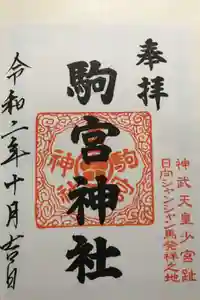 奉拝
神武天皇少宮趾
日向シャンシャン馬発祥之地
駒宮神社
令和二年十月吉日